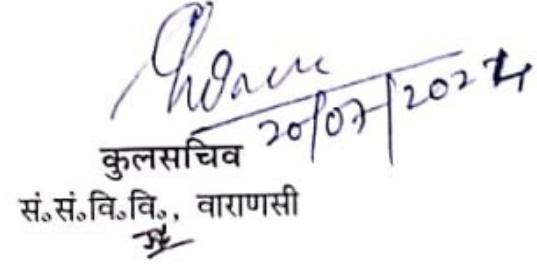 20/07/2024
कुलसचिव
सं॰सं॰वि॰वि॰, वाराणसी